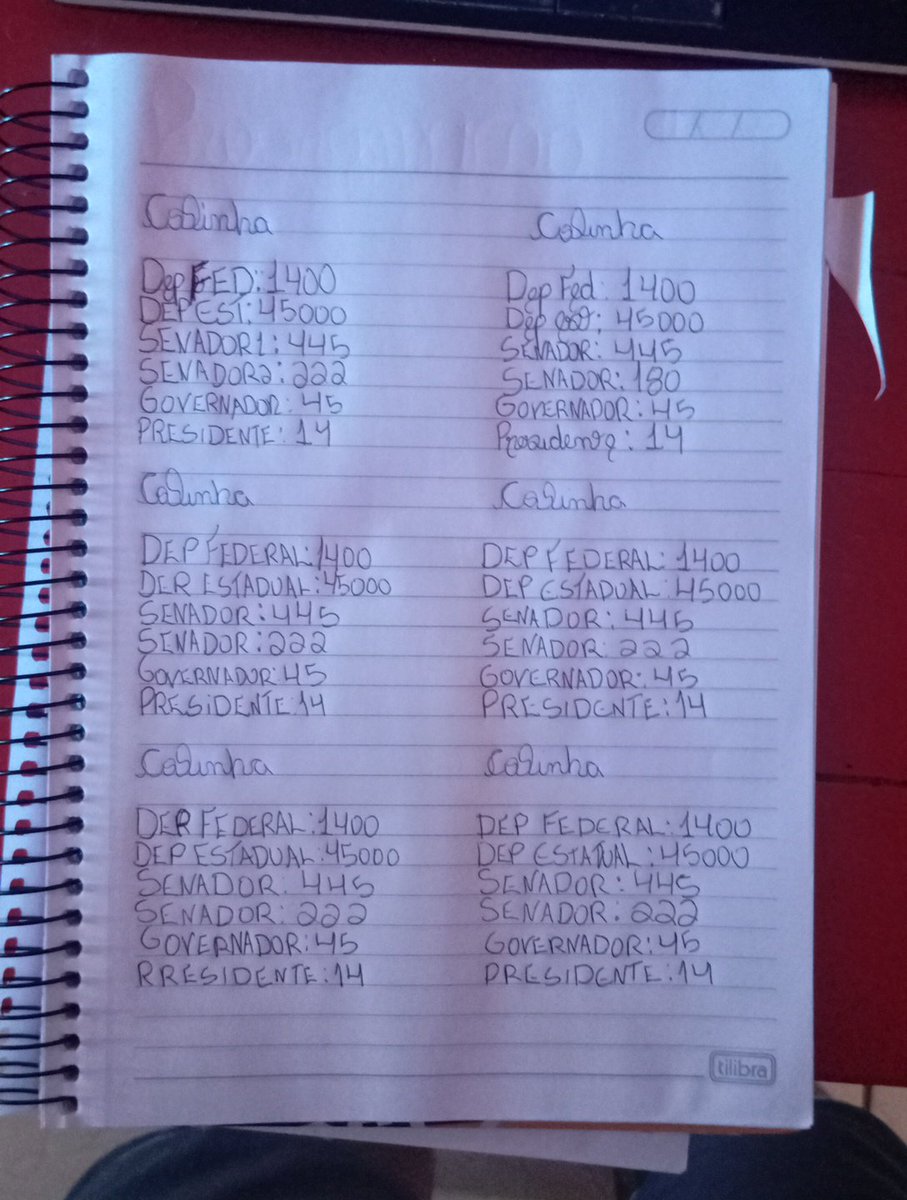 Colinha
DepFED: 1400
DEP EST: 45000
SENADOR1: 445
SENADOR2: 222
GOVERNADOR: 45
PRESIDENTE: 14
Colinha
Dep Fed: 1400
Dep est: 45000
SENADOR: 445
SENADOR: 180
GOVERNADOR: 45
Presidente: 14
Colinha
DEP FEDERAL: 1400
DEP ESTADUAL: 45000
SENADOR: 445
SENADOR: 222
GOVERNADOR: 45
PRESIDENTE: 14
Colinha
DEP FEDERAL: 1400
DEP ESTADUAL: 45000
SENADOR: 445
SENADOR: 222
GOVERNADOR: 45
PRESIDENTE: 14
Colinha
DEP FEDERAL: 1400
DEP ESTADUAL: 45000
SENADOR: 445
SENADOR: 222
GOVERNADOR: 45
PRESIDENTE: 14
Colinha
DEP FEDERAL: 1400
DEP ESTATUAL: 45000
SENADOR: 445
SENADOR: 222
GOVERNADOR: 45
PRESIDENTE: 14
tilibra